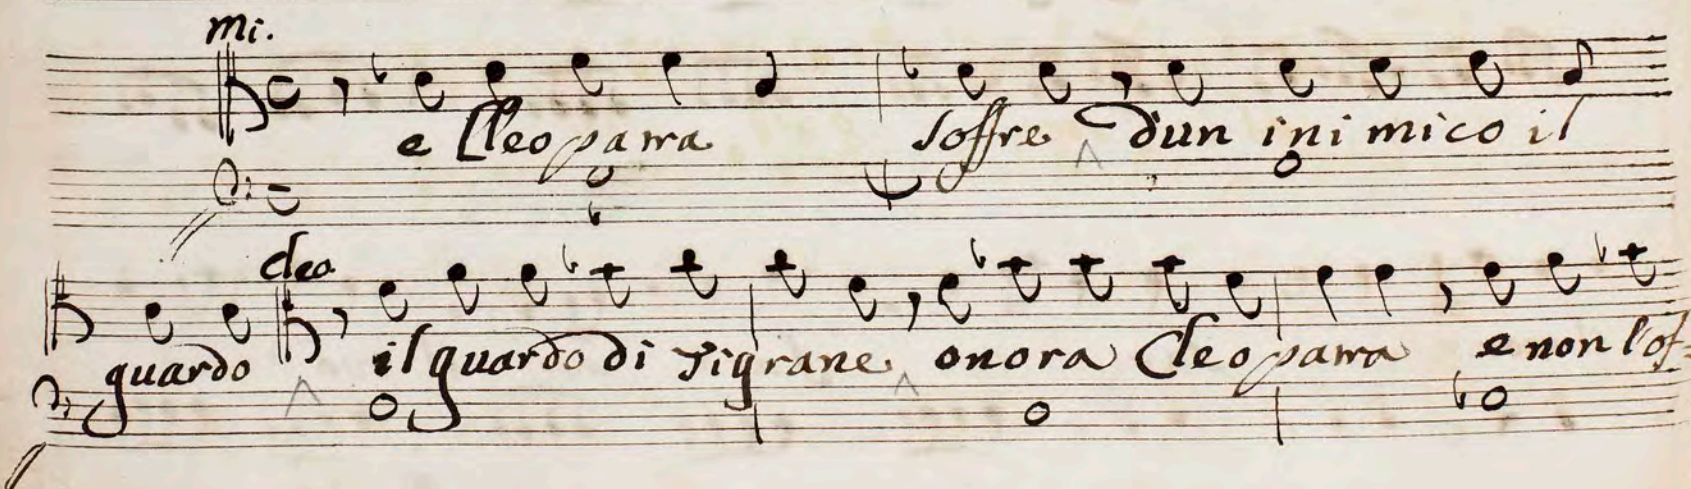 mi.
e Cleopatra soffre dun inimico il
cleo
guardo il guardo di Tigrane onora Cleopatra e non l'of=